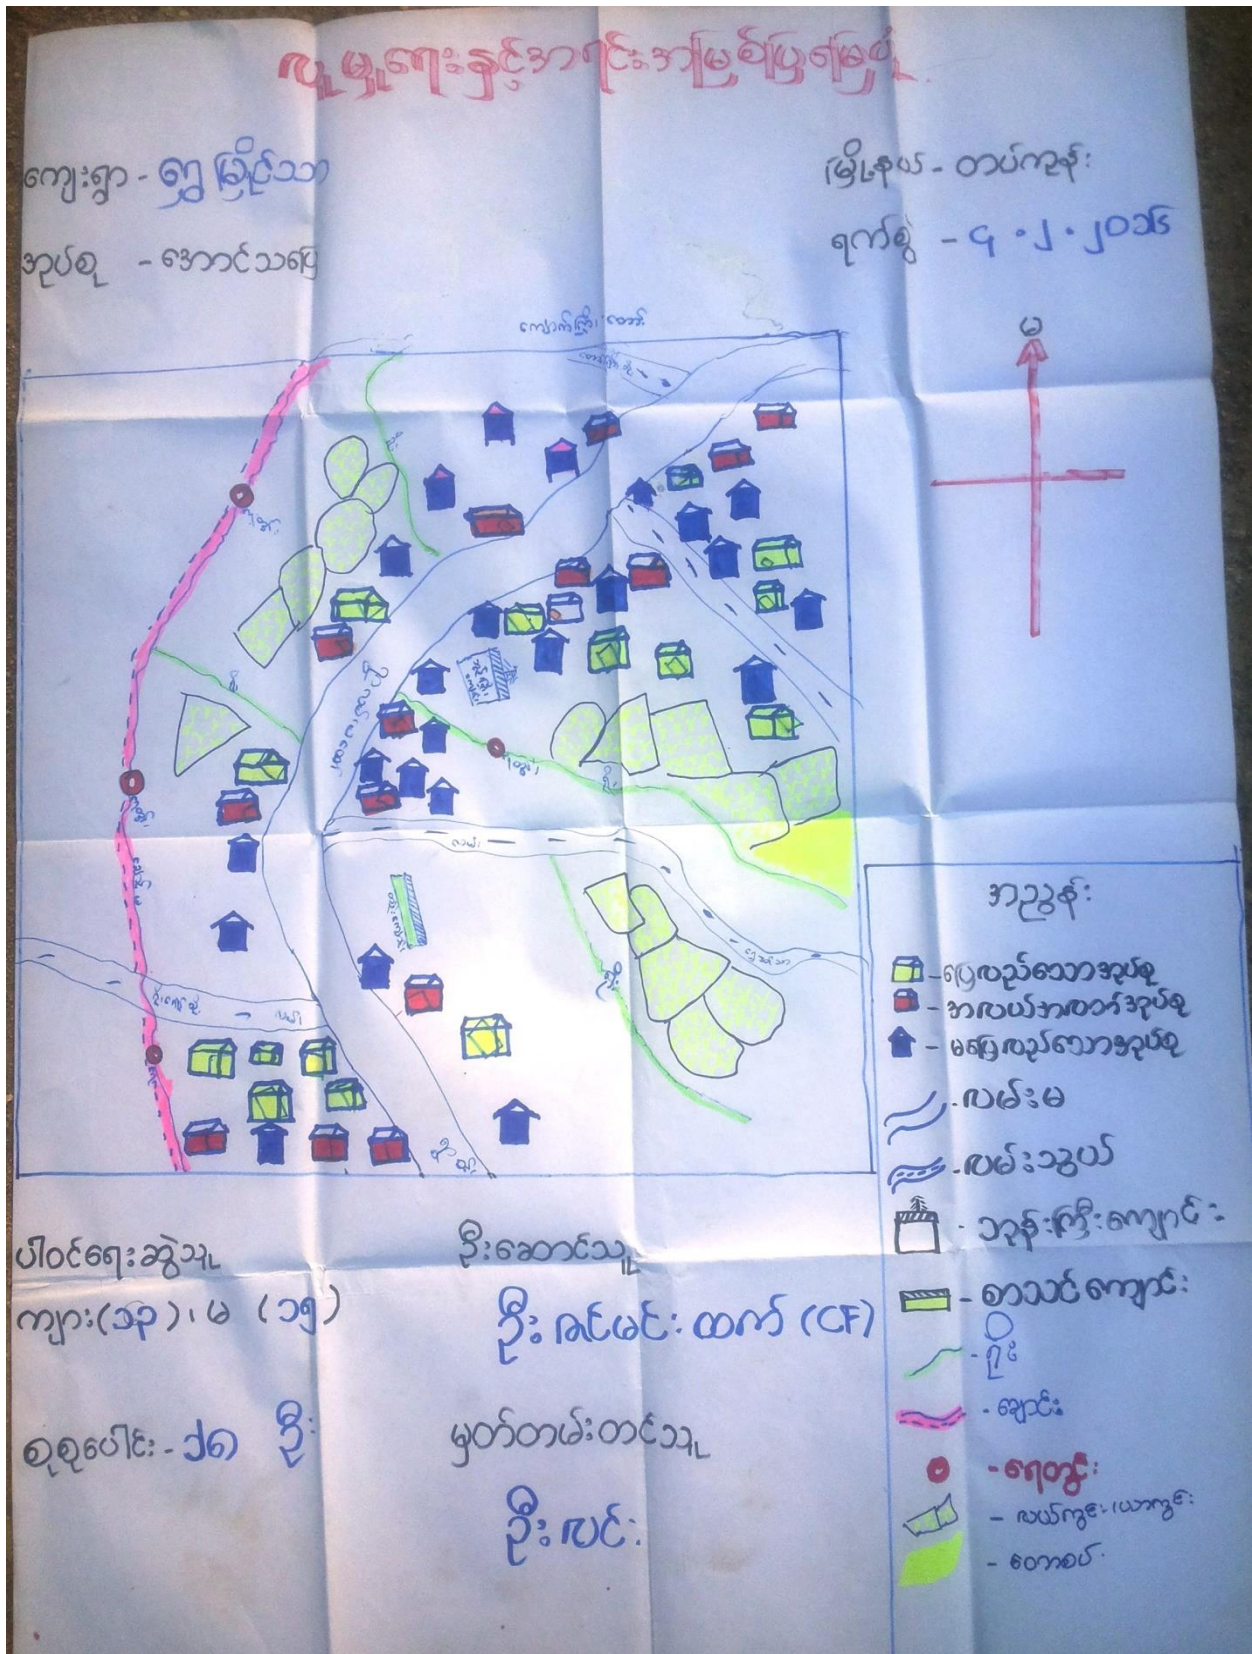 လူမှုရေးနှင့်အရင်းအမြစ်ပြမြေပုံ
ကျေးရွာ - ရွှေမြိုင်သာ
မြို့နယ် - တပ်ကုန်း
အုပ်စု - အောင်သပြေ
ရက်စွဲ - ၄.၂.၂၀၁၆
မ
ရေတွင်း
ရိုး
လမ်း
အညွှန်း
- ပြေလည်သောအုပ်စု
- အလယ်အလတ်အုပ်စု
- မပြေလည်သောအုပ်စု
- လမ်းမ
- လမ်းသွယ်
- ဘုန်းကြီးကျောင်း
- စာသင်ကျောင်း
- ရိုး
- ချောင်း
- ရေတွင်း
- လယ်ကွင်း/ယာကွင်း
- တောစပ်
ပါဝင်ရေးဆွဲသူ
ကျား(၁၃)၊ မ (၁၅)
စုစုပေါင်း - ၂၈ ဦး
ဦးဆောင်သူ
ဦးဇင်မင်းထက် (CF)
မှတ်တမ်းတင်သူ
ဦးလင်း